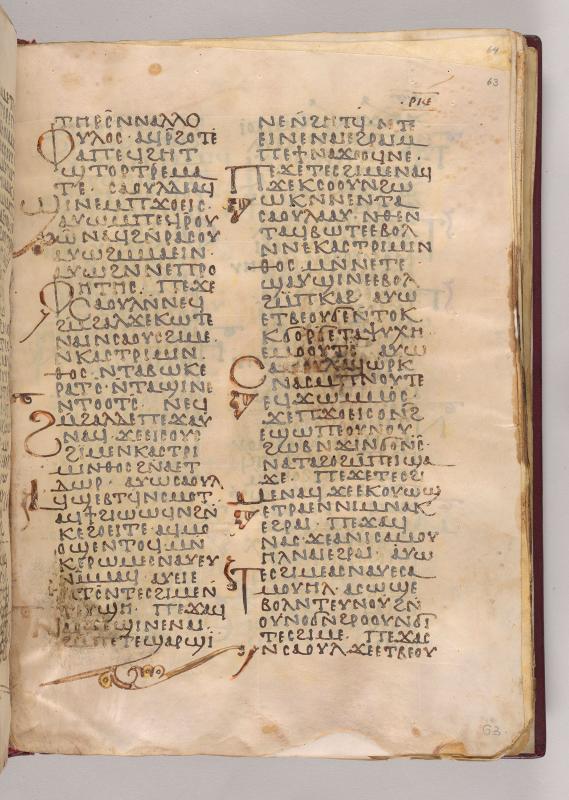 ⲧⲏⲣⲥ̅ⲛⲛⲁⲗⲗⲟ
ⲫⲩⲗⲟⲥ· ⲁϥⲣ̅ϩⲟⲧⲉ
ⲁⲡⲉϥϩⲏⲧ
ϣⲧⲟⲣⲧⲣⲉⲙⲁ
ⲧⲉ· ⲥⲁⲟⲩⲗⲇⲉⲁϥ
ϣⲓⲛⲉⲙⲡϫⲟⲉⲓⲥ·
ⲁⲩⲱⲙⲡⲉϥⲣⲟⲩ
ⲱ ⲛⲁϥϩⲛ̅ⲣⲁⲥⲟⲩ
ⲁⲩⲱϩⲙⲙⲁⲉⲓⲛ·
ⲁⲩⲱϩⲛⲛⲉⲡⲣⲟ
ⲫⲏⲧⲏⲥ· ⲡⲉϫⲉ
ⲥⲁⲟⲩⲗⲛⲛⲉϥ
ϩⲙϩⲁⲗϫⲉⲕⲱⲧⲉ
ⲛⲁⲓⲛⲥⲁⲟⲩⲥϩⲓⲙⲉ·
ⲛⲕⲁⲥⲧⲣⲓⲙⲛ
ⲑⲟⲥ· ⲛⲧⲁⲃⲱⲕⲉ
ⲣⲁⲧⲥ· ⲛⲧⲁϣⲓⲛⲉ
ⲛⲧⲟⲟⲧⲥ· ⲛⲉϥ
ϩⲙϩⲁⲗⲇⲉⲡⲉϫⲁⲩ
ⲛⲁϥ ϫⲉⲉⲓⲥⲟⲩⲥ
ϩⲓⲙⲉⲛⲕⲁⲥⲧⲣⲓ
ⲙⲛⲑⲟⲥϩⲛⲁⲉⲧ
ⲇⲱⲣ· ⲁⲩⲱⲥⲁⲟⲩⲗ
ⲁϥϣⲉⲃⲧϥⲛⲥⲙⲟⲧ
ⲁϥϯϩⲓⲱⲱϥⲛϩⲛ
ⲕⲉϩⲟⲉⲓⲧⲉ· ⲁϥⲙⲟ
ⲟϣⲉⲛⲧⲟϥ ⲙⲛ
ⲕⲉⲣⲱⲙⲉⲥⲛⲁⲩⲉⲩ
ⲛⲙⲙⲁϥ ⲁⲩⲉⲓⲉ
ϩⲓⲙⲉⲛ
ⲡⲉϫⲁϥ
ϣⲓⲛⲉⲛⲁⲓ·
ⲡⲉⲧⲉϣⲁⲣϣⲓ
ⲣⲓⲉ
ⲛⲉⲛϩⲏⲧϥ· ⲛⲧⲉ
ⲉⲓⲛⲉⲛⲁⲓⲉϩⲣⲁⲓⲙ
ⲡⲉϯⲛⲁϫⲟⲟϥⲛⲉ·
ⲡⲉϫⲉⲧⲉⲥϩⲓⲙⲉⲛⲁϥ
ϫⲉⲕⲥⲟⲟⲩⲛϩⲱ
ⲱⲕⲛⲛⲉⲛⲧⲁ
ⲥⲁⲟⲩⲗⲁⲁⲩ· ⲛⲑⲉⲛ
ⲧⲁϥⲃⲱⲧⲉⲉⲃⲟⲗ
ⲛⲛⲉⲕⲁⲥⲧⲣⲓⲙⲛ
ⲑⲟⲥ ⲙⲛⲛⲉⲧⲉ
ϣⲁⲩϣⲓⲛⲉⲉⲃⲟⲗ
ϩⲙⲡⲕⲁϩ· ⲁⲩⲱ
ⲉⲧⲃⲉⲟⲩⲛⲧⲟⲕ
ⲕϭⲟⲣϭⲉⲧⲁⲯⲩⲭⲏ
ⲉⲙⲟⲟⲩⲧⲥ ⲁⲩⲱ
ⲥⲁⲟⲩⲗⲁϥⲱⲣⲕ
ⲛⲁⲥⲙⲡⲛⲟⲩⲧⲉ
ⲉϥϫⲱⲙⲙⲟⲥ·
ϫⲉⲡϫⲟⲉⲓⲥⲟⲛϩ
ⲉϣⲱⲡⲉⲟⲩⲛⲟⲩ
ϩⲱⲃⲛϫⲓⲛϭⲟⲛⲥ̅·
ⲛⲁⲧⲁϩⲟϩⲙⲡⲉⲓϣⲁ
ϫⲉ· ⲡⲉϫⲉⲧⲉⲥϩⲓ
ⲙⲉⲛⲁϥ ϫⲉⲉⲕⲟⲩⲱϣ
ⲉⲧⲣⲁⲉⲛⲛⲓⲙⲛⲁⲕ
ⲉϩⲣⲁⲓ· ⲡⲉϫⲁϥ
ⲛⲁⲥ ϫⲉⲁⲛⲓⲥⲁⲙⲟⲩ
ⲏⲗⲛⲁⲓⲉϩⲣⲁⲓ· ⲁⲩⲱ
ⲧⲉⲥϩⲓⲙⲉⲁⲥⲛⲁⲩⲉⲥⲁ
ⲙⲟⲩⲏⲗ ⲁⲥⲱϣⲉ
ⲃⲟⲗⲛⲧⲉⲩⲛⲟⲩϩⲛ
ⲟⲩⲛⲟϭⲛϩⲣⲟⲟⲩⲛϭⲓ
ⲧⲉⲥϩⲓⲙⲉ· ⲡⲉϫⲁⲥ
ⲛⲥⲁⲟⲩⲗ ϫⲉⲉⲧⲃⲉⲟⲩ
64
63
63